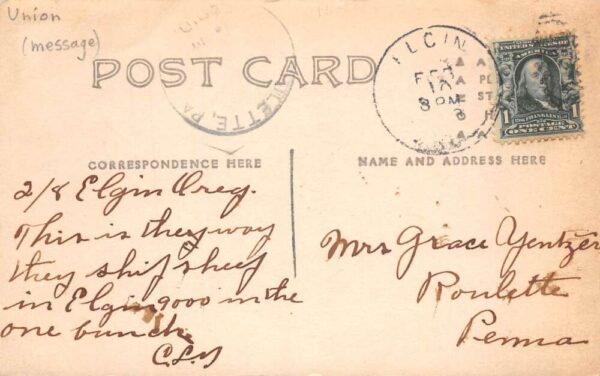 Union
(message)
POST CARD
LETTE, PA
ELGIN
FEB
10
8 PM
UNITED STATES OF AMERICA
1 FRANKLIN 1
POSTAGE
ONE CENT
CORRESPONDENCE HERE
NAME AND ADDRESS HERE
2/8 Elgin Oreg.
This is they way
they ship sheep
in Elgin 9000 in the
one bunch
Mrs Grace Yentzer
Roulette
Penna